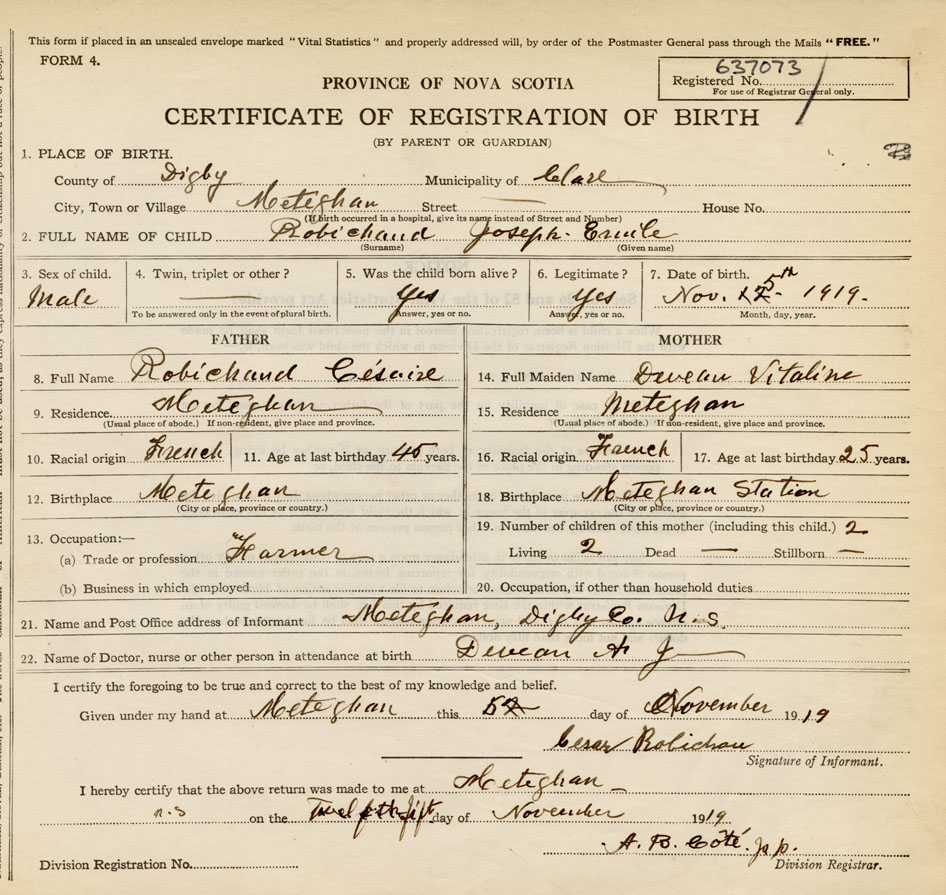 This form if placed in an unsealed envelope marked "Vital Statistics" and properly addressed will, by order of the Postmaster General pass through the Mails "FREE."
FORM 4.
637073
Registered No.
For use of Registrar General only.
PROVINCE OF NOVA SCOTIA
CERTIFICATE OF REGISTRATION OF BIRTH
(BY PARENT OR GUARDIAN)
1. PLACE OF BIRTH.
County of Digby Municipality of Clare
City, Town or Village Meteghan Street House No.
(If birth occurred in a hospital, give its name instead of Street and Number)
2. FULL NAME OF CHILD Robichaud Joseph-Emile
(Surname) (Given name)
3. Sex of child. 4. Twin, triplet or other? 5. Was the child born alive? 6. Legitimate? 7. Date of birth.
Male Yes Yes Nov. 5th 1919.
To be answered only in the event of plural birth. Answer, yes or no. Answer, yes or no. Month, day, year.
FATHER MOTHER
8. Full Name Robichaud Césaire 14. Full Maiden Name Deveau Vitaline
9. Residence. Meteghan 15. Residence Meteghan
(Usual place of abode.) If non-resident, give place and province. (Usual place of abode.) If non-resident, give place and province.
10. Racial origin French 11. Age at last birthday 45 years. 16. Racial origin French 17. Age at last birthday 25 years.
12. Birthplace Meteghan 18. Birthplace Meteghan Station
(City or place, province or country.) (City or place, province or country.)
13. Occupation:— 19. Number of children of this mother (including this child.) 2
(a) Trade or profession Farmer Living 2 Dead — Stillborn —
(b) Business in which employed 20. Occupation, if other than household duties
21. Name and Post Office address of Informant Meteghan, Digby Co. N.S.
22. Name of Doctor, nurse or other person in attendance at birth Deveau A J
I certify the foregoing to be true and correct to the best of my knowledge and belief.
Given under my hand at Meteghan this 5 day of November 1919
Cesar Robichau
Signature of Informant.
I hereby certify that the above return was made to me at Meteghan
n.s on the day of November 1919
A. B. Côté. J.p.
Division Registration No. Division Registrar.